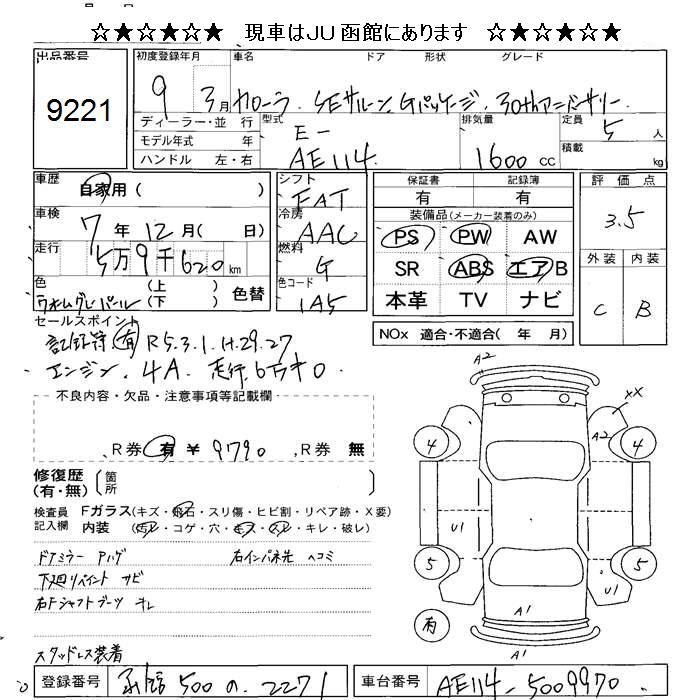 ☆★☆★☆★ 現車はJU函館にあります ☆★☆★☆★
出品番号
9221
初度登録年月 車名 ドア 形状 グレード
9 3月 カローラ SEサルーン Gパッケージ 30thアニバーサリー
ディーラー・並 行
モデル年式 年
ハンドル 左・右
型式
E-
AE114
排気量
1600 cc
定員
5 人
積載
kg
車歴
自家用 ( )
車検
7年 12月 ( 日)
走行
5万9千620 km
色 (上) (下) 色替
ウォームグレーパール
シフト
FAT
冷房
AAC
燃料
G
色コード
1A5
保証書 記録簿
有 有
装備品(メーカー装着のみ)
PS PW AW
SR ABS エアB
本革 TV ナビ
NOx 適合・不適合( 年 月)
評価点
3.5
外装 内装
C B
セールスポイント
記録簿 有 R5.3.1.H.29.27
エンジン. 4A. 走行6万キロ.
不良内容・欠品・注意事項等記載欄
R券 有 ¥ 9790 R券 無
修復歴
(有・無)
箇所
検査員 Fガラス(キズ・飛石・スリ傷・ヒビ割・リペア跡・X要)
記入欄 内装 (汚レ・コゲ・穴・キズ・スレ・キレ・破レ)
ドアミラー ハゲ 右インパネ先 ヘコミ
下廻リペイント サビ
右Fシャフトブーツ キレ
スタッドレス装着
A2
XX
A2
4
4
U1
5
5
U1
有
A1
A1
登録番号 函館 500 の 2271
車台番号 AE114-5009970